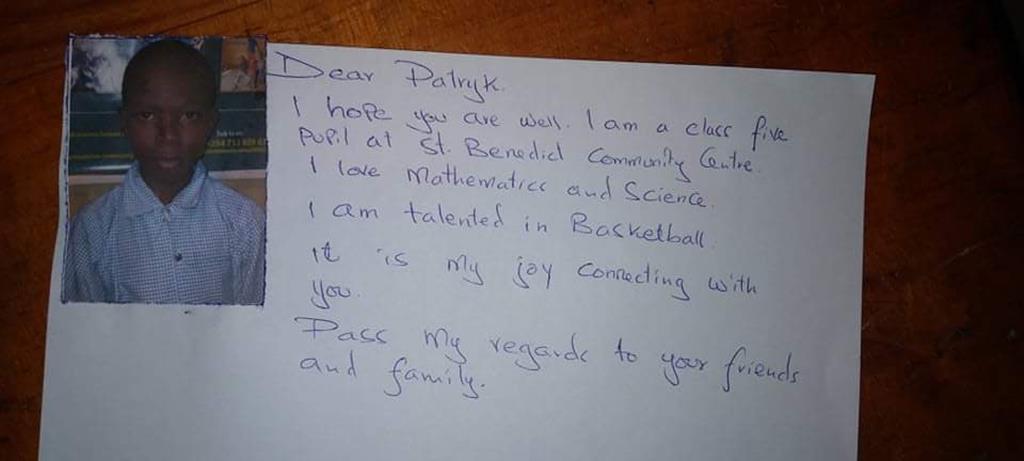 Dear Patryk.
I hope you are well. I am a class five
pupil at St. Benedict Community Centre.
I love Mathematics and Science.
I am talented in Basketball.
it is my joy connecting with
you.
Pass my regards to your friends
and family.